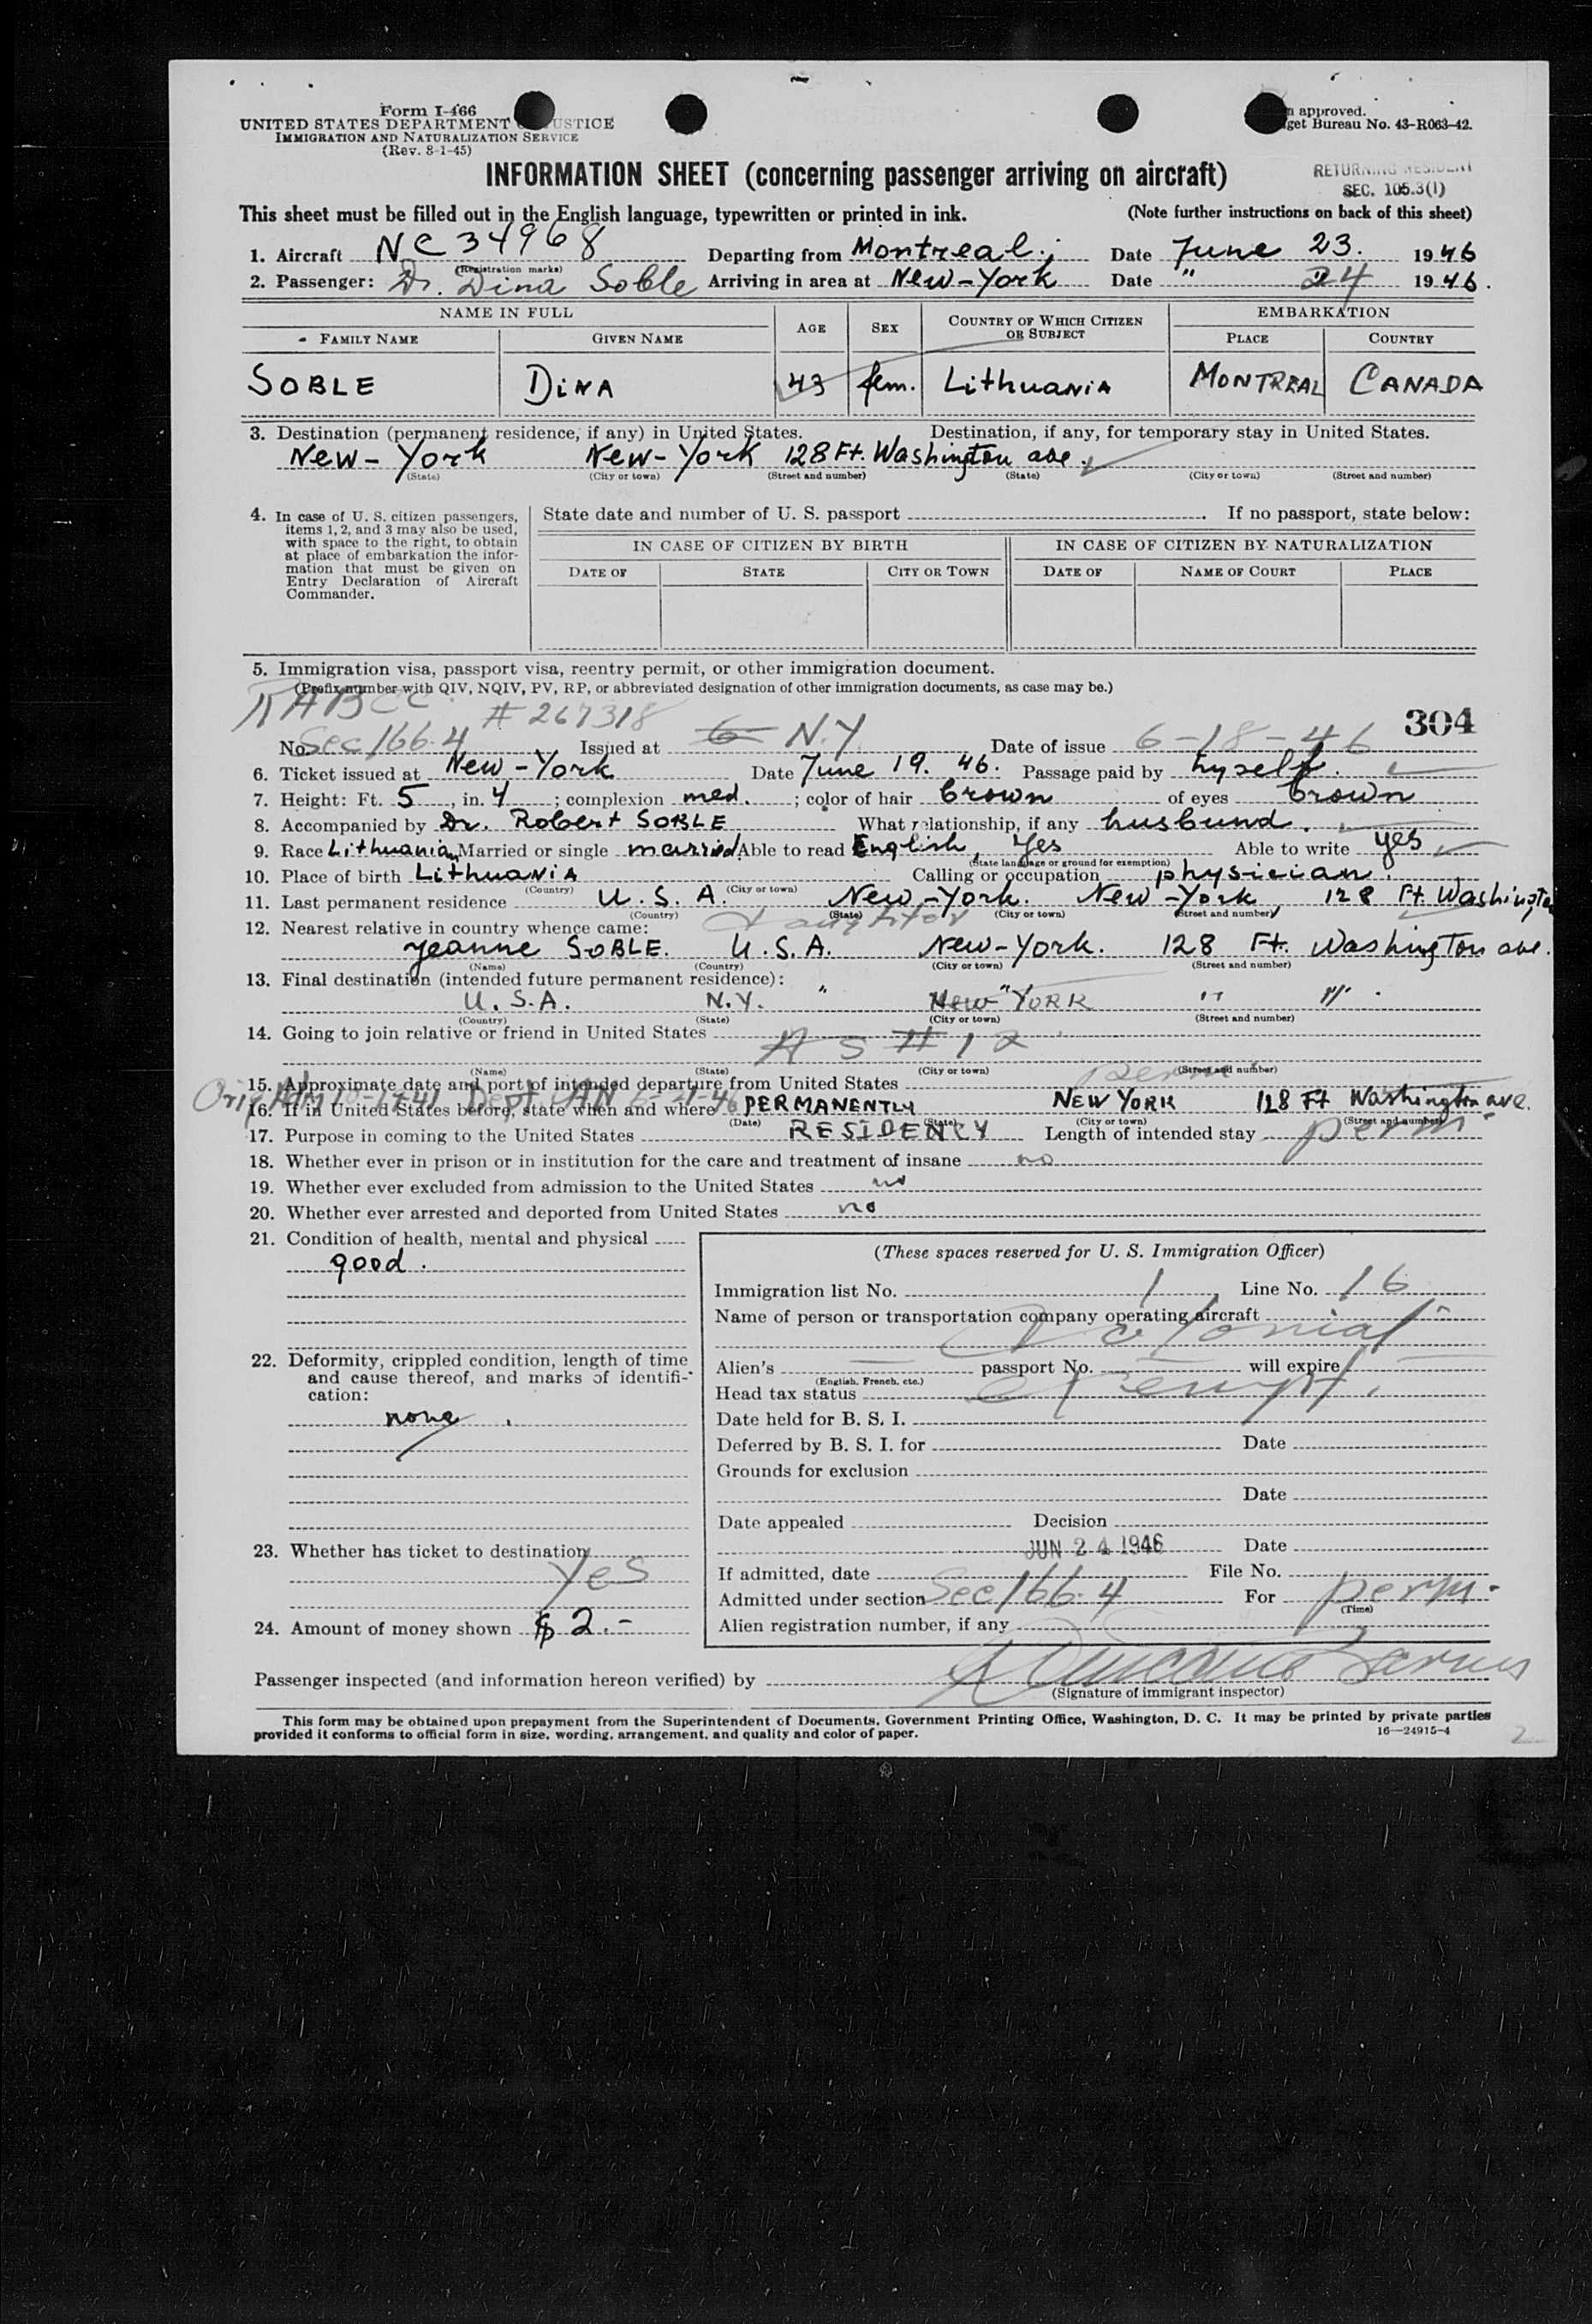 Form I-466
UNITED STATES DEPARTMENT OF JUSTICE
IMMIGRATION AND NATURALIZATION SERVICE
(Rev. 8-1-45)
approved.
get Bureau No. 43-R063-42.
INFORMATION SHEET (concerning passenger arriving on aircraft)
RETURNING RESIDENT
SEC. 105.3(1)
This sheet must be filled out in the English language, typewritten or printed in ink. (Note further instructions on back of this sheet)
1. Aircraft NC 34968 Departing from Montreal. Date June 23. 1946
(Registration marks)
2. Passenger: Dr. Dina Soble Arriving in area at New-York Date " 24 1946.
NAME IN FULL AGE SEX COUNTRY OF WHICH CITIZEN OR SUBJECT EMBARKATION
FAMILY NAME GIVEN NAME PLACE COUNTRY
SOBLE DINA 43 fem. Lithuania MONTREAL CANADA
3. Destination (permanent residence, if any) in United States. Destination, if any, for temporary stay in United States.
New-York New-York 128 Ft. Washington ave.
(State) (City or town) (Street and number) (State) (City or town) (Street and number)
4. In case of U. S. citizen passengers, items 1, 2, and 3 may also be used, with space to the right, to obtain at place of embarkation the information that must be given on Entry Declaration of Aircraft Commander.
State date and number of U. S. passport If no passport, state below:
IN CASE OF CITIZEN BY BIRTH IN CASE OF CITIZEN BY NATURALIZATION
DATE OF STATE CITY OR TOWN DATE OF NAME OF COURT PLACE
5. Immigration visa, passport visa, reentry permit, or other immigration document.
(Prefix number with QIV, NQIV, PV, RP, or abbreviated designation of other immigration documents, as case may be.)
# 267318
304
No. Sec 166.4 Issued at N.Y. Date of issue 6-18-46
6. Ticket issued at New-York Date June 19. 46. Passage paid by hyself.
7. Height: Ft. 5, in. 4; complexion med.; color of hair brown of eyes brown
8. Accompanied by Dr. Robert SOBLE What relationship, if any husband.
9. Race Lithuanian Married or single married Able to read English, Yes Able to write yes
(State language or ground for exemption)
10. Place of birth Lithuania Calling or occupation physician.
(Country) (City or town)
11. Last permanent residence U.S.A. New-York. New-York, 128 Ft. Washington
(Country) (State) (City or town) (Street and number)
12. Nearest relative in country whence came: daughter
Jeanne SOBLE. U.S.A. New-York. 128 Ft. Washington ave.
(Name) (Country) (City or town) (Street and number)
13. Final destination (intended future permanent residence):
U.S.A. N.Y. " New "YORK " "
(Country) (State) (City or town) (Street and number)
14. Going to join relative or friend in United States
AS # 12
(Name) (State) (City or town) (Street and number)
15. Approximate date and port of intended departure from United States perm
16. If in United States before, state when and where PERMANENTLY NEW YORK 128 Ft Washington ave.
(Date) (State) (City or town) (Street and number)
17. Purpose in coming to the United States RESIDENCY Length of intended stay perm-
18. Whether ever in prison or in institution for the care and treatment of insane no
19. Whether ever excluded from admission to the United States no
20. Whether ever arrested and deported from United States no
21. Condition of health, mental and physical
good.
22. Deformity, crippled condition, length of time and cause thereof, and marks of identification:
none.
23. Whether has ticket to destination
Yes
24. Amount of money shown $ 2.-
(These spaces reserved for U. S. Immigration Officer)
Immigration list No. 1 Line No. 16
Name of person or transportation company operating aircraft
Colonial
Alien's passport No. will expire
(English, French, etc.)
Head tax status exempt.
Date held for B. S. I.
Deferred by B. S. I. for Date
Grounds for exclusion
Date
Date appealed Decision
JUN 24 1946 Date
If admitted, date File No.
Admitted under section Sec 166.4 For perm.
(Time)
Alien registration number, if any
Passenger inspected (and information hereon verified) by
(Signature of immigrant inspector)
This form may be obtained upon prepayment from the Superintendent of Documents, Government Printing Office, Washington, D. C. It may be printed by private parties
provided it conforms to official form in size, wording, arrangement, and quality and color of paper. 16—24915-4
2